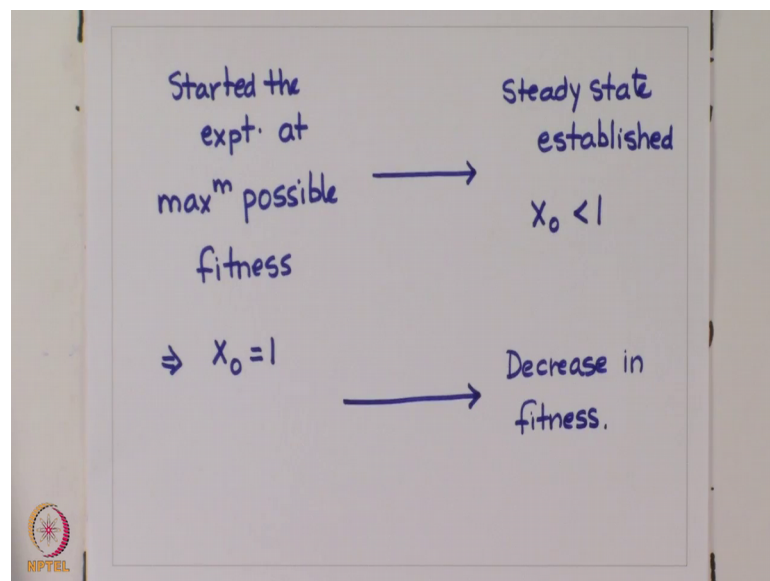 Started the
expt. at
maxᵐ possible
fitness
⇒ X₀ = 1
Steady state
established
X₀ < 1
Decrease in
fitness.
NPTEL